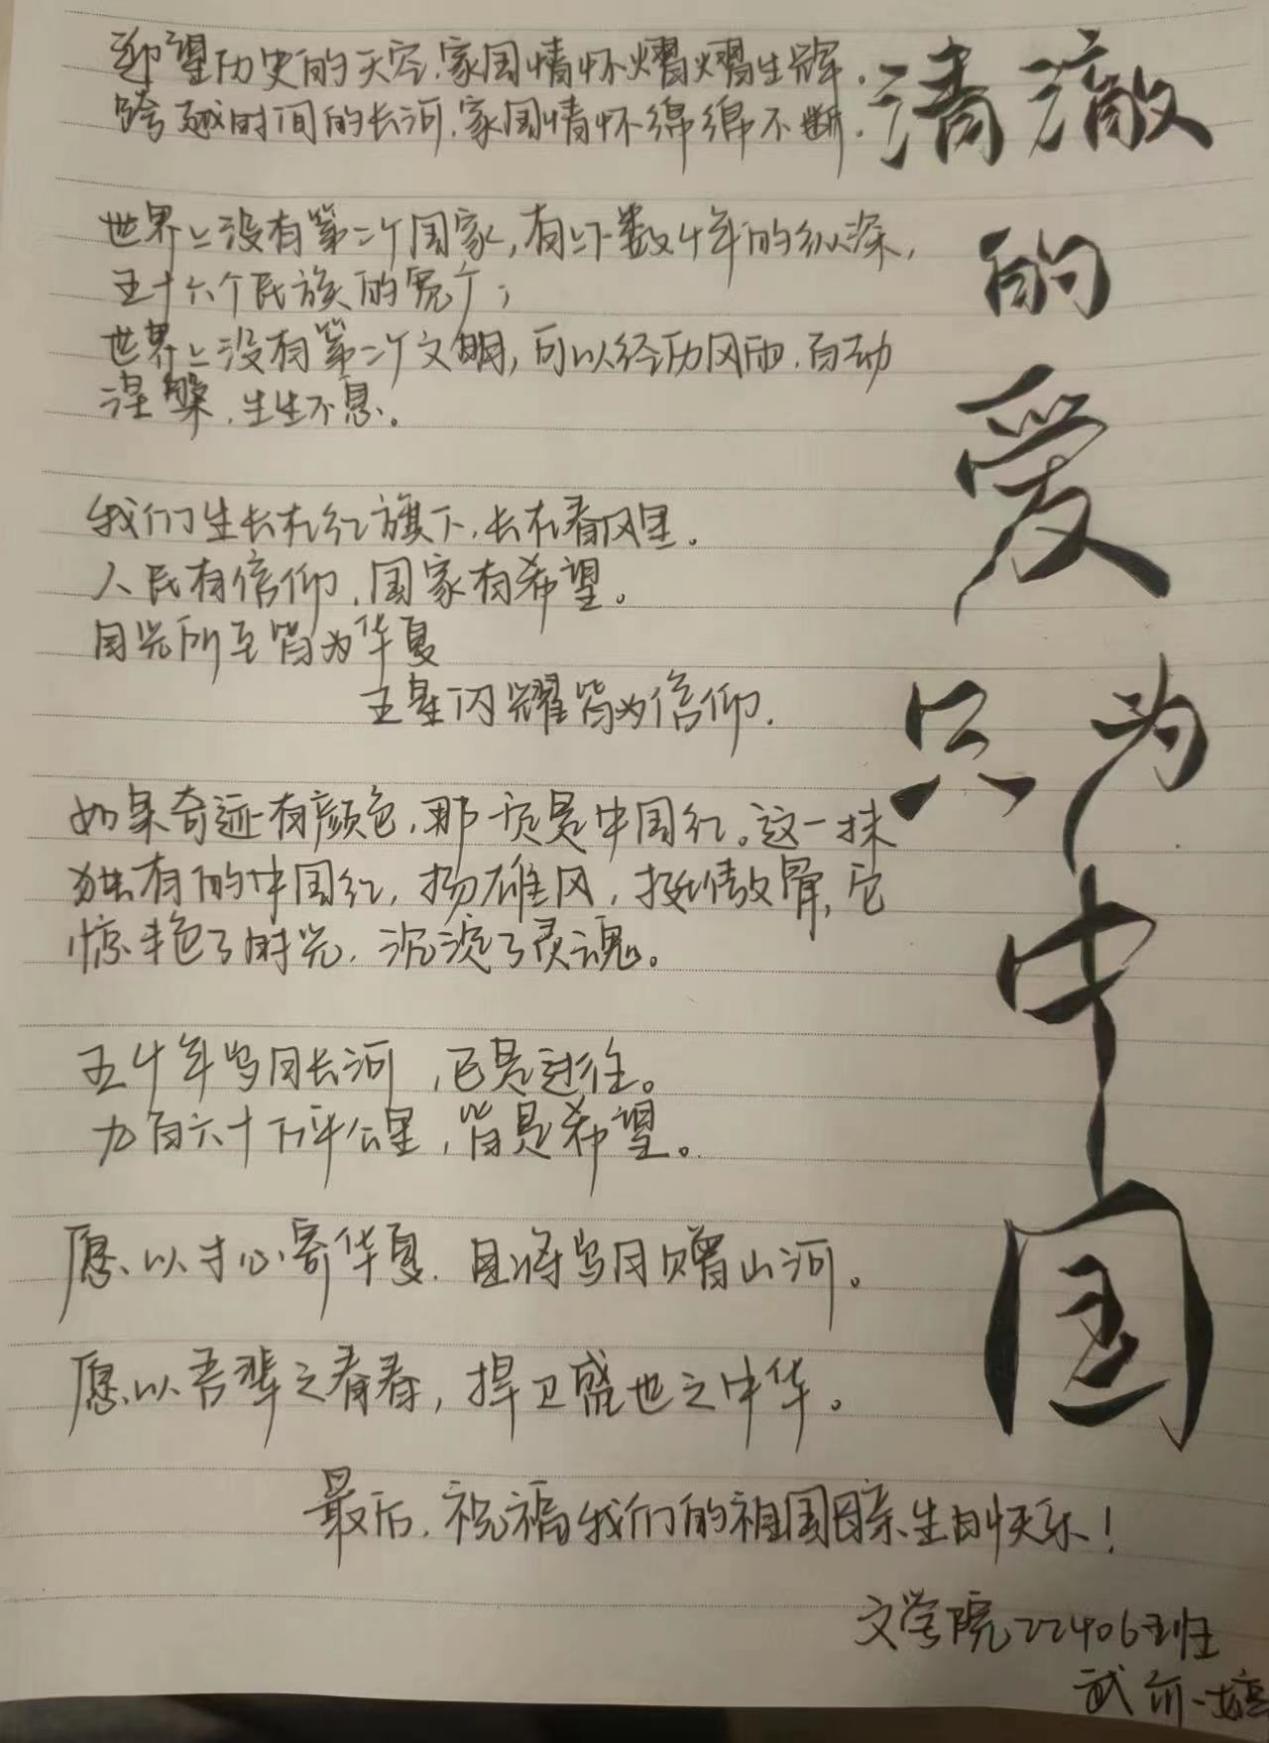 清澈的爱只为中国
仰望历史的天空，家国情怀熠熠生辉，
跨越时间的长河，家国情怀绵绵不断。
世界上没有第二个国家，有上下数千年的纵深，
五十六个民族的宽广；
世界上没有第二个文明，可以经历风雨，自动
涅槃，生生不息。
我们生长在红旗下，长在春风里。
人民有信仰，国家有希望。
目光所至皆为华夏
五星闪耀皆为信仰。
如果奇迹有颜色，那一定是中国红。这一抹
独有的中国红，扬雄风，挺傲骨，它
惊艳了时光，沉淀了灵魂。
五千年岁月长河，已是过往。
九百六十万平公里，皆是希望。
愿以寸心寄华夏，且将岁月赠山河。
愿以吾辈之青春，捍卫盛世之中华。
最后，祝福我们的祖国母亲生日快乐！
文学院22406班
武